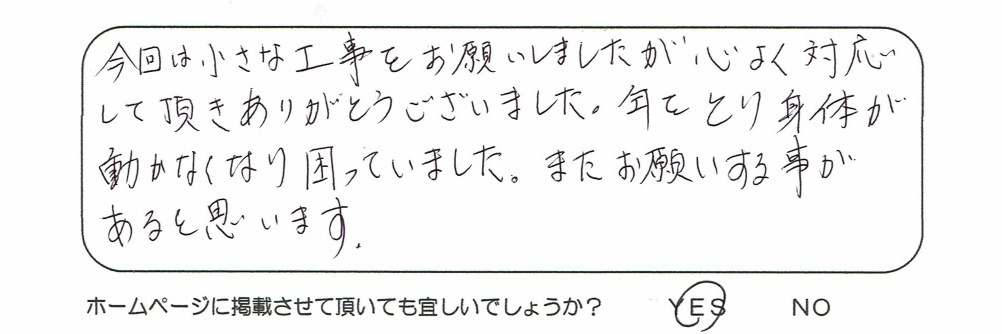 今回は小さな工事をお願いしましたが心よく対応
して頂きありがとうございました。年をとり身体が
動かなくなり困っていました。またお願いする事が
あると思います.
ホームページに掲載させて頂いても宜しいでしょうか? YES NO